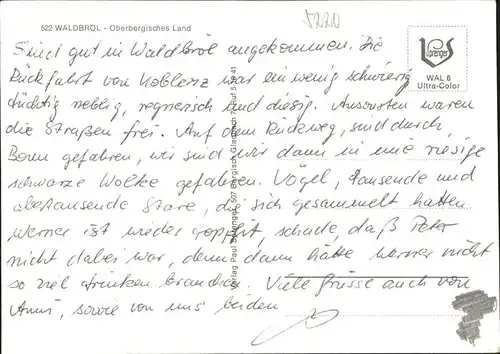 5220
522 WALDBRÖL - Oberbergisches Land
Sprenger
WAL 6
Ultra-Color
Sind gut in Waldbröl angekommen. Die
Rückfahrt von Koblenz war ein wenig schwierig
tüchtig neblig, regnerisch und diesig. Ansonsten waren
die Straßen frei. Auf dem Rückweg, sind durch
Bonn gefahren, wir sind wir dann in eine riesige
schwarze Wolke gefahren. Vögel, tausende und
abertausende Stare, die sich gesammelt hatten.
Werner ist wieder schade, daß Peter
nicht dabei war, denn dann hätte Werner nicht
so viel trinken brauchen. Viele Grüsse auch von
Anni, sowie von uns beiden
Verlag Paul Sprenger, 507 Bergisch Gladbach 2, Ruf 5 29 41